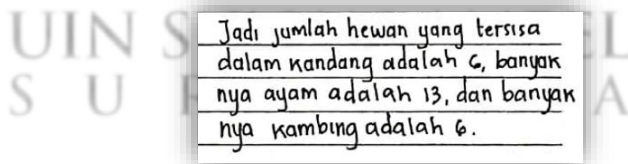 UIN S EL
S U R A
Jadi jumlah hewan yang tersisa
dalam kandang adalah 6, banyak
nya ayam adalah 13, dan banyak
nya kambing adalah 6.